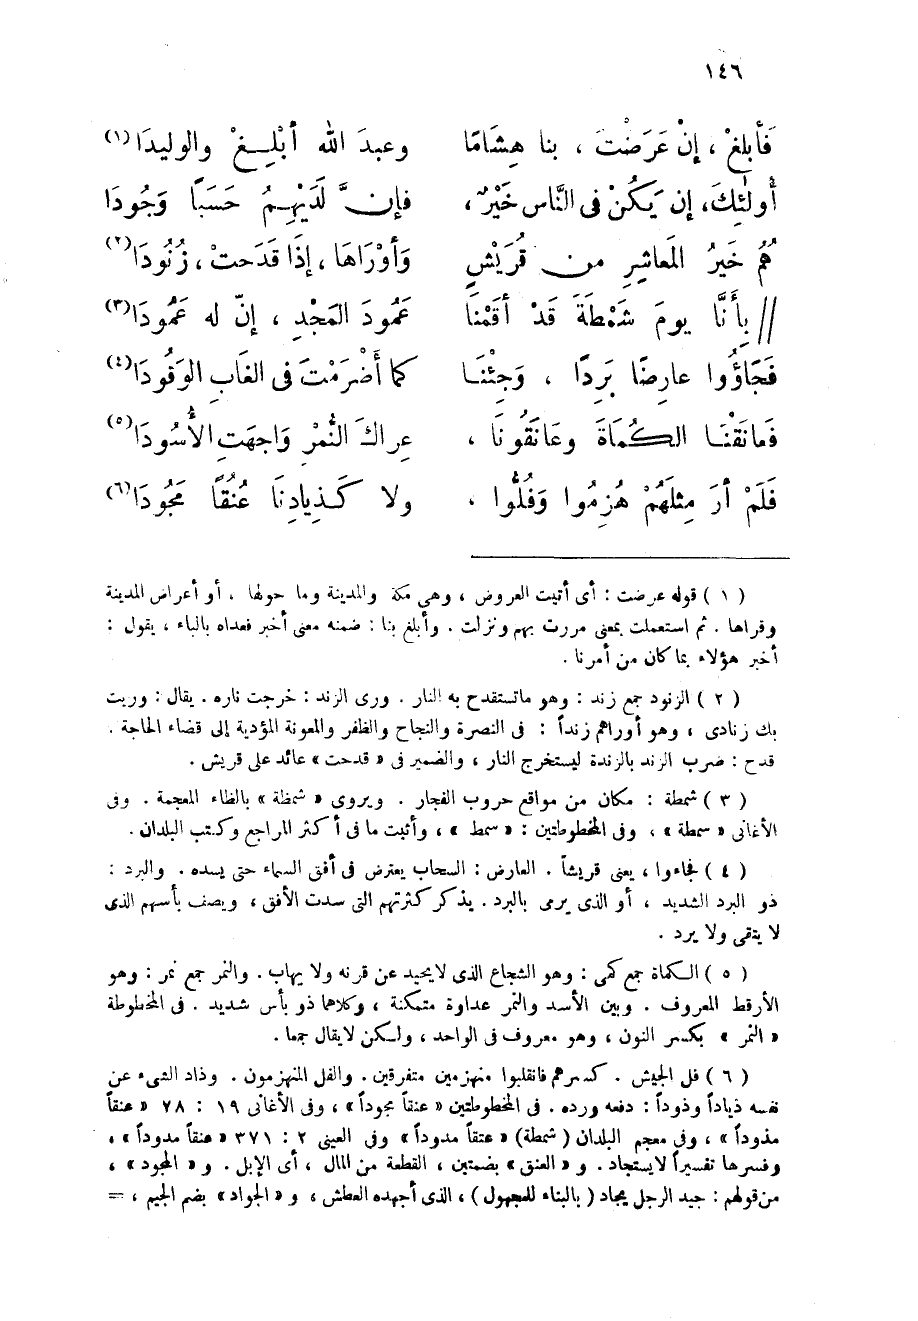 ١٤٦
فَأَبلغْ ، إنْ عَرَضْتَ ، بنا هِشَامًا وعبدَ الله أبْلِـغْ والوليدَا(١)
أُولٰئِكَ، إن يَكُنْ فى النَّاس خَيْرٌ، فإنـــَّ لَدَيْهِـمُ حَسَبًا وَجُودَا
هُمُ خَيرُ المَعاشِرِ من قُرَيْشٍ وَأوْرَاهَا ، إذَا قَدَحتْ ، زُنُودَا(٢)
// بِأَنَّا يومَ شَمْطةَ قَدْ أقَمْنَا عَمُودَ المَجْدِ ، إنّ له عَمُودَا(٣)
فَجَاؤُوا عارِضًا بَرِدًا ، وَجِئْنَـا كما أضْرَمْتَ فى الغَابِ الوَقُودَا(٤)
فَعانَقْنَـا الكُمَاةَ وعَانَقُونَا ، عِراكَ النُّمْرْ وَاجهَتِ الأُسُودَا(٥)
فَلَمْ أرَ مِثلَهُمْ هُزِمُوا وَفُلُّوا ، ولا كَـذِيادِنَا عُنُقًا مَجُودَا(٦)
( ١ ) قوله عرضت : أى أتيت العروض ، وهى مكة والمدينة وما حولها ، أو أعراض المدينة
وقراها . ثم استعملت بمعنى مررت بهم ونزلت . وأبلغ بنا : ضمنه معنى أخبر فعداه بالباء ، يقول :
أخبر هؤلاء بما كان من أمرنا .
( ٢ ) الزنود جمع زند : وهو ماتستقدح به النار . ورى الزند : خرجت ناره . يقال : وريت
بك زنادى ، وهو أوراهم زنداً : فى النصرة والنجاح والظفر والمعونة المؤدية إلى قضاء الحاجة .
قدح : ضرب الزند بالزندة ليستخرج النار ، والضمير فى « قدحت » عائد على قريش .
( ٣ ) شمطة : مكان من مواقع حروب الفجار . ويروى « شمظة » بالظاء المعجمة . وفى
الأغانى « سمطة » ، وفى المخطوطتين : « سمط » ، وأثبت ما فى أكثر المراجع وكتب البلدان .
( ٤ ) فجاءوا ، يعنى قريشاً . العارض : السحاب يعترض فى أفق السماء حتى يسده . والبرد :
ذو البرد الشديد ، أو الذى يرمى بالبرد . يذكر كثرتهم التى سدت الأفق ، ويصف بأسهم الذى
لا يتقى ولا يرد .
( ٥ ) الكماة جمع كمى : وهو الشجاع الذى لايحيد عن قرنه ولا يهاب . والنمر جمع نمر : وهو
الأرقط المعروف . وبين الأسد والنمر عداوة متمكنة ، وكلاهما ذو بأس شديد . فى المخطوطة
« النمر » بكسر النون ، وهو معروف فى الواحد ، ولكن لايقال جمعا .
( ٦ ) فل الجيش . كسرهم فانقلبوا منهزمين متفرقين . والفل المنهزمون . وذاد الشىء عن
نفسه ذياداً وذوداً : دفعه ورده . فى المخطوطتين « عنقاً مجوداً » ، وفى الأغانى ١٩ : ٧٨ « عنقاً
مذوداً » ، وفى معجم البلدان ( شمطة ) « عتقاً مدوداً » وفى العينى ٢ : ٣٧١ « عنقاً مدوداً » ،
وفسرها تفسيراً لايستجاد . و « العنق » بضمتين ، القطعة من المال ، أى الإبل . و « المجود » ،
من قولهم : جيد الرجل يجاد ( بالبناء للمجهول ) ، الذى أجهده العطش ، و « الجواد » بضم الجيم ، =